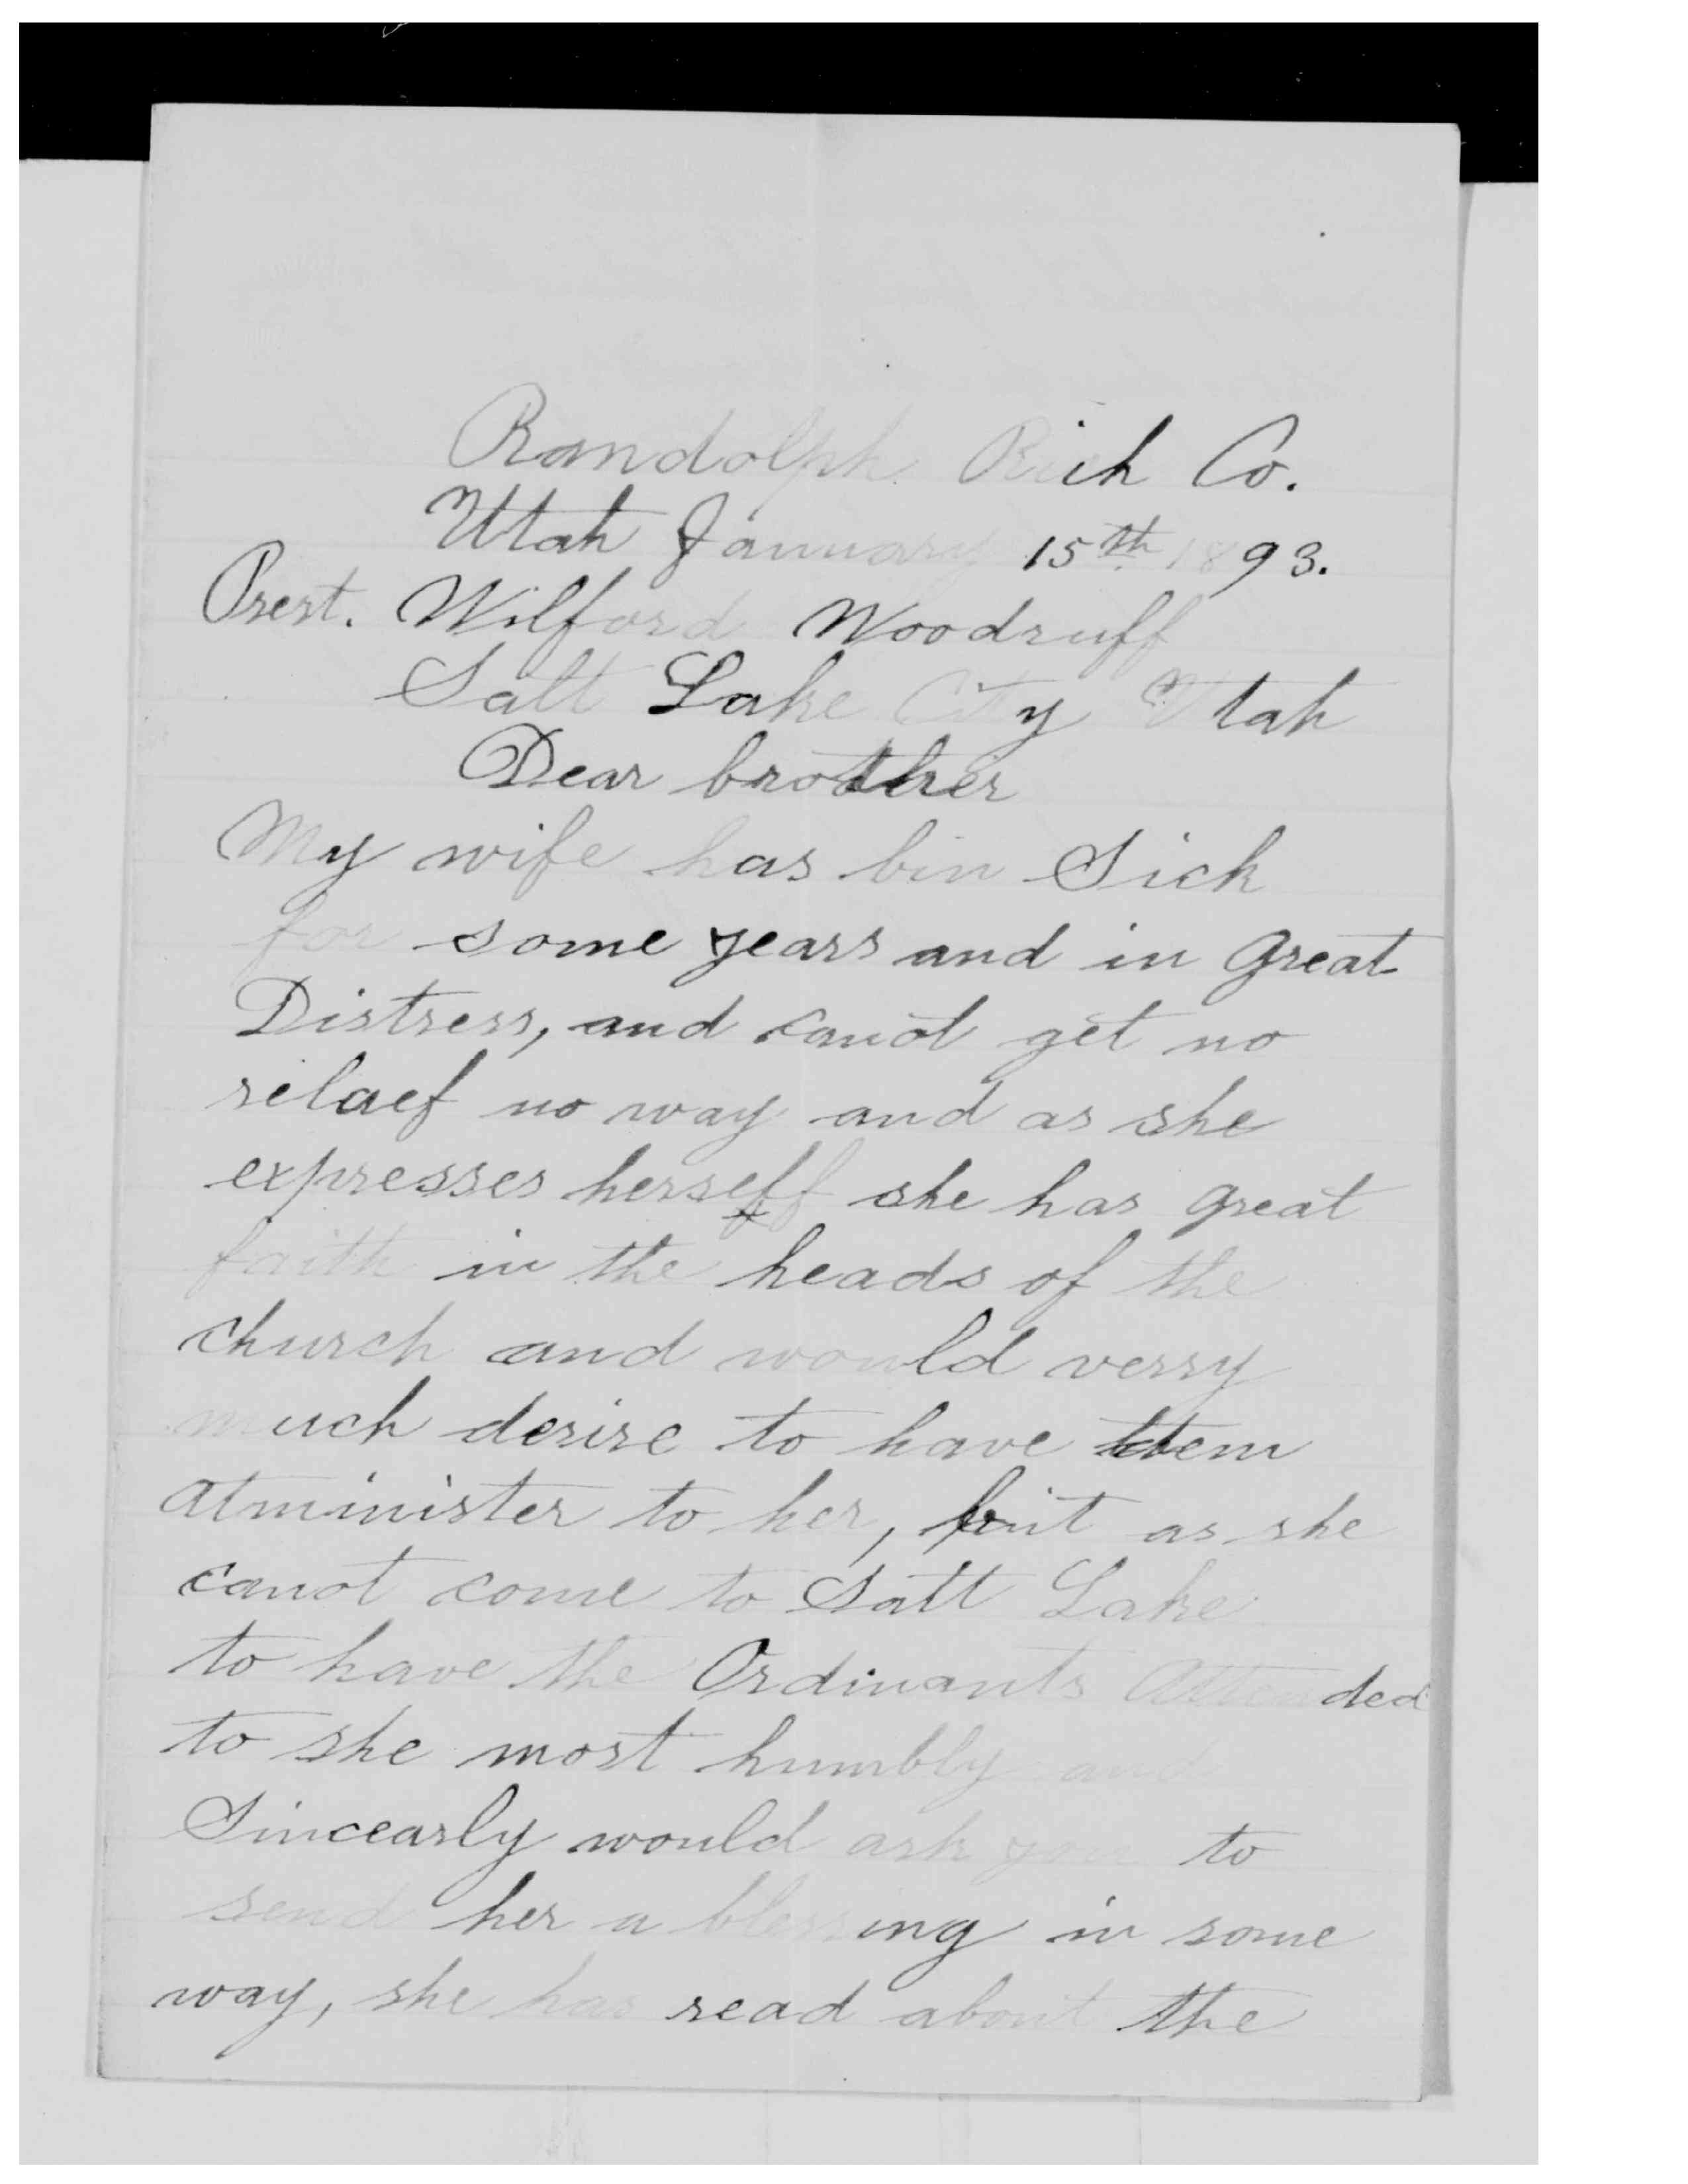 Randolph Rich Co.
Utah January 15th 1893.
Prest. Wilford Woodruff
Salt Lake City Utah
Dear brother
My wife has bin Sick
for some years and in great
Distress, and canot get no
relaef no way and as she
expresses herself she has great
faith in the heads of the
church and would verry
much desire to have them
atminister to her, but as she
canot come to Salt Lake
to have the Ordinants Attended
to she most humbly and
Sincearly would ask you to
send her a blessing in some
way, she has read about the